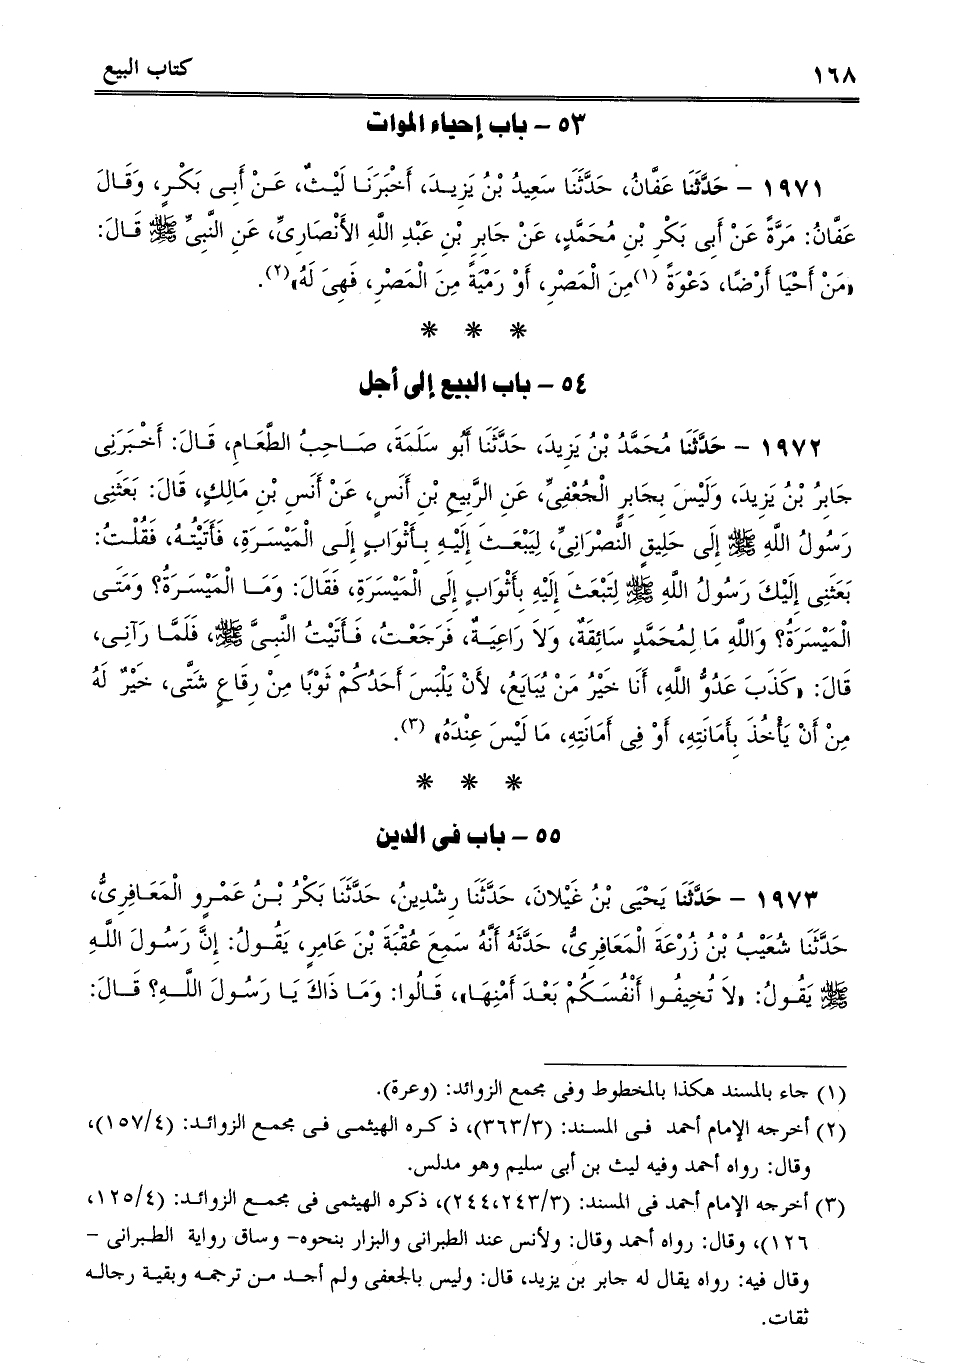 ١٦٨ كتاب البيع
٥٣ – باب إحياء الموات
١٩٧١ – حَدَّثَنَا عَفَّانُ، حَدَّثَنَا سَعِيدُ بْنُ يَزِيدَ، أَخْبَرَنَا لَيْثٌ، عَنْ أَبِى بَكْرٍ، وَقَالَ
عَفَّانُ: مَرَّةً عَنْ أَبِى بَكْرِ بْنِ مُحَمَّدٍ، عَنْ جَابِرِ بْنِ عَبْدِ اللهِ الأَنْصَارِىِّ، عَنِ النَّبِىِّ ﷺ قَالَ:
«مَنْ أَحْيَا أَرْضًا، دَعْوَةً (١) مِنَ الْمَصْرِ، أَوْ رَمْيَةً مِنَ الْمَصْرِ، فَهِىَ لَهُ»(٢).
* * *
٥٤ – باب البيع إلى أجل
١٩٧٢ – حَدَّثَنَا مُحَمَّدُ بْنُ يَزِيدَ، حَدَّثَنَا أَبُو سَلَمَةَ، صَاحِبُ الطَّعَامِ، قَالَ: أَخْبَرَنِى
جَابِرُ بْنُ يَزِيدَ، وَلَيْسَ بِجَابِرٍ الْجُعْفِىِّ، عَنِ الرَّبِيعِ بْنِ أَنَسٍ، عَنْ أَنَسِ بْنِ مَالِكٍ، قَالَ: بَعَثَنِى
رَسُولُ اللهِ ﷺ إِلَى حَلِيقٍ النَّصْرَانِىِّ، لِيَبْعَثَ إِلَيْهِ بِأَثْوَابٍ إِلَى الْمَيْسَرَةِ، فَأَتَيْتُهُ، فَقُلْتُ:
بَعَثَنِى إِلَيْكَ رَسُولُ اللهِ ﷺ لِتَبْعَثَ إِلَيْهِ بِأَثْوَابٍ إِلَى الْمَيْسَرَةِ، فَقَالَ: وَمَا الْمَيْسَرَةُ؟ وَمَتَى
الْمَيْسَرَةُ؟ وَاللهِ مَا لِمُحَمَّدٍ سَائِقَةٌ، وَلاَ رَاعِيَةٌ، فَرَجَعْتُ، فَأَتَيْتُ النَّبِىَّ ﷺ، فَلَمَّا رَآنِى،
قَالَ: «كَذَبَ عَدُوُّ اللهِ، أَنَا خَيْرُ مَنْ يُبَايَعُ، لأَنْ يَلْبَسَ أَحَدُكُمْ ثَوْبًا مِنْ رِقَاعٍ شَتَّى، خَيْرٌ لَهُ
مِنْ أَنْ يَأْخُذَ بِأَمَانَتِهِ، أَوْ فِى أَمَانَتِهِ، مَا لَيْسَ عِنْدَهُ» (٣).
* * *
٥٥ – باب فى الدين
١٩٧٣ – حَدَّثَنَا يَحْيَى بْنُ غَيْلاَنَ، حَدَّثَنَا رِشْدِينُ، حَدَّثَنَا بَكْرُ بْنُ عَمْرٍو الْمَعَافِرِىُّ،
حَدَّثَنَا شُعَيْبُ بْنُ زُرْعَةَ الْمَعَافِرِىُّ، حَدَّثَهُ أَنَّهُ سَمِعَ عُقْبَةَ بْنَ عَامِرٍ، يَقُولُ: إِنَّ رَسُولَ اللهِ
ﷺ يَقُولُ: «لاَ تُخِيفُوا أَنْفُسَكُمْ بَعْدَ أَمْنِهَا»، قَالُوا: وَمَا ذَاكَ يَا رَسُولَ اللهِ؟ قَالَ:
(١) جاء بالمسند هكذا بالمخطوط وفى مجمع الزوائد: (وعرة).
(٢) أخرجه الإمام أحمد فى المسند: (٣٦٣/٣)، ذكره الهيثمى فى مجمع الزوائد: (١٥٧/٤)،
وقال: رواه أحمد وفيه ليث بن أبى سليم وهو مدلس.
(٣) أخرجه الإمام أحمد فى المسند: (٢٤٤،٢٤٣/٣)، ذكره الهيثمى فى مجمع الزوائد: (١٢٥/٤،
١٢٦)، وقال: رواه أحمد وقال: ولأنس عند الطبرانى والبزار بنحوه- وساق رواية الطبرانى –
وقال فيه: رواه يقال له جابر بن يزيد، قال: وليس بالجعفى ولم أجد من ترجمه وبقية رجاله
ثقات.